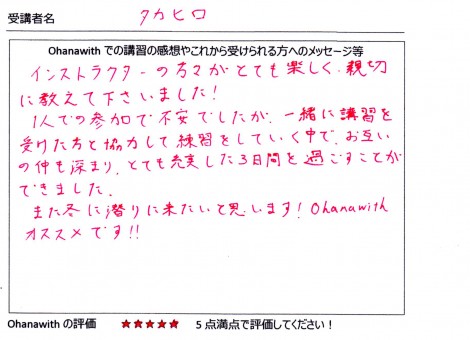 受講者名 タカヒロ
Ohanawith での講習の感想やこれから受けられる方へのメッセージ等
インストラクターの方々がとても楽しく、親切
に教えて下さいました!
1人での参加で不安でしたが、一緒に講習を
受けた方と協力して練習をしていく中で、お互い
の仲も深まり、とても充実した3日間を過ごすことが
できました。
また冬に潜りに来たいと思います! Ohanawith
オススメです!!
Ohanawith の評価 ★★★★★ 5点満点で評価してください!